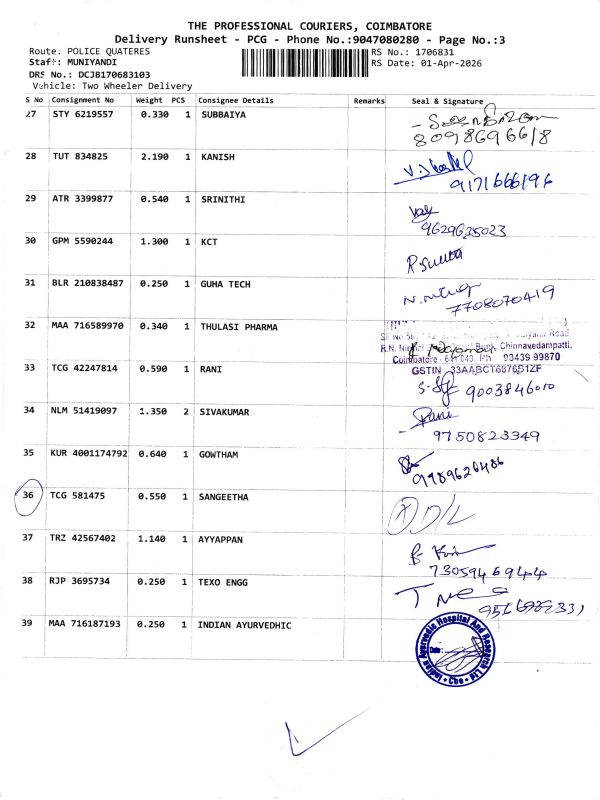 THE PROFESSIONAL COURIERS, COIMBATORE
Delivery Runsheet - PCG - Phone No.:9047080280 - Page No.:3
Route: POLICE QUATERES RS No.: 1706831
Staff: MUNIYANDI RS Date: 01-Apr-2026
DRS No.: DCJB170683103
Vehicle: Two Wheeler Delivery
S No Consignment No Weight PCS Consignee Details Remarks Seal & Signature
27 STY 6219557 0.330 1 SUBBAIYA
8098696618
28 TUT 834825 2.190 1 KANISH
9171666196
29 ATR 3399877 0.540 1 SRINITHI
9629635023
30 GPM 5590244 1.300 1 KCT
31 BLR 210838487 0.250 1 GUHA TECH
7708070419
32 MAA 716589970 0.340 1 THULASI PHARMA
Road
Bunk, Chinnavedampatti,
Coimbatore - 641 049. Ph 93439 99870
GSTIN 33AABCT6876B1ZF
33 TCG 42247814 0.590 1 RANI
9003846010
34 NLM 51419097 1.350 2 SIVAKUMAR Rani
9750823349
35 KUR 4001174792 0.640 1 GOWTHAM
9989626486
36 TCG 581475 0.550 1 SANGEETHA D/L
37 TRZ 42567402 1.140 1 AYYAPPAN
7305946944
38 RJP 3695734 0.250 1 TEXO ENGG
39 MAA 716187193 0.250 1 INDIAN AYURVEDHIC
Indian Ayurvedic Hospital And Research
Date: